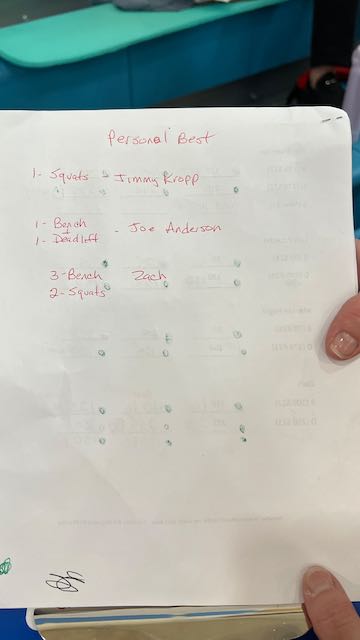 Personal Best
1- Squats - Jimmy Kropp
1- Bench
+
1- Deadlift - Joe Anderson
3-Bench Zach
2-Squats